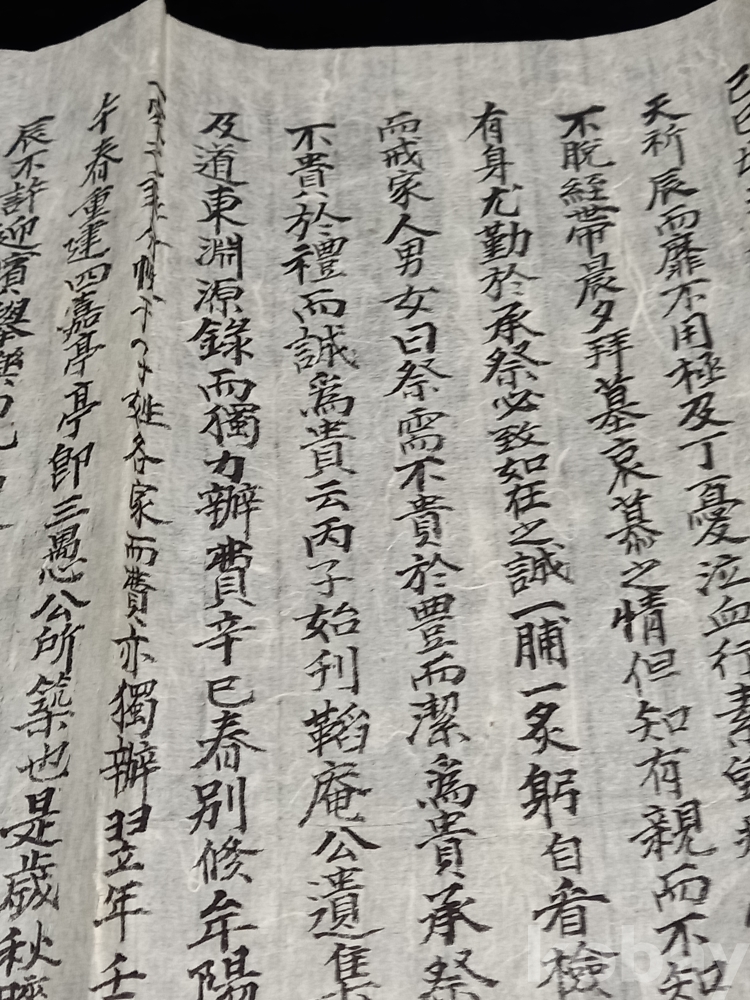 己巳
天祈辰而靡不用極及丁憂泣血行素
不脫絰帶晨夕拜墓哀慕之情但知有親而不知
有身尤勤於承祭必致如在之誠一脯一炙躬自看檢
而戒家人男女曰祭需不貴於豊而潔爲貴承祭
不貴於禮而誠爲貴云丙子始刊韜庵公遺集
及道東淵源錄而獨力辦費辛巳春別修牟陽
子姓各家而費亦獨辦翌年壬
午春重建四嘉亭亭卽三愚公所築也是歲秋
辰不許迎賓